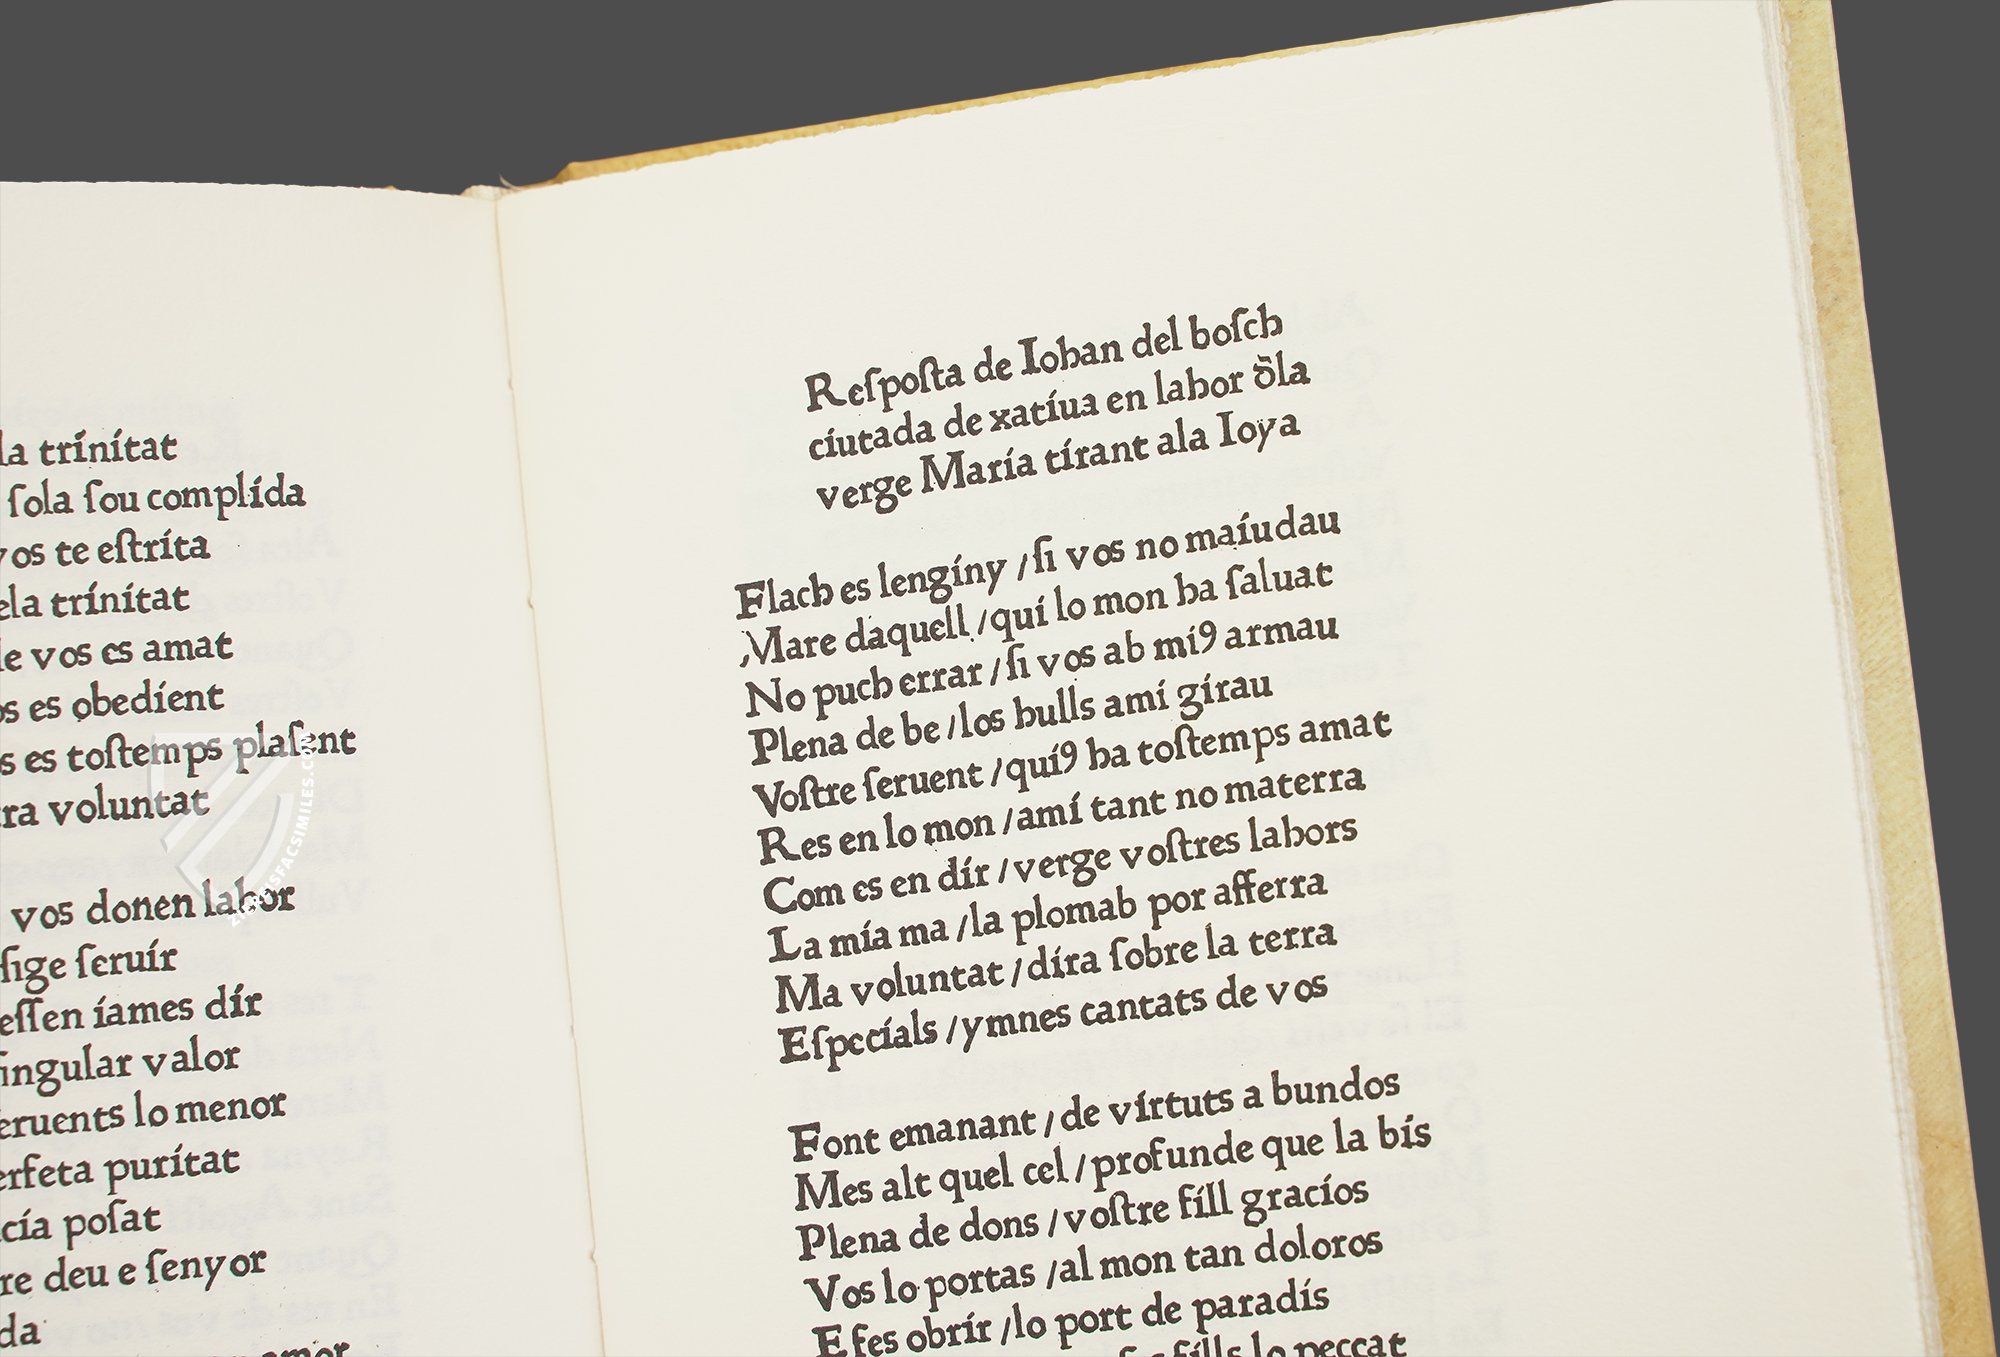 la trinitat
ſola ſou complida
vos te eſtrita
ela trinitat
de vos es amat
os es obedient
s es toſtemps plaſent
tra voluntat
vos donen labor
ſige ſeruir
eſſen iames dir
ſingular valor
eruents lo menor
erfeta puritat
cia poſat
re deu e ſenyor
da
amor
Reſpoſta de Iohan del boſch
ciutada de xatiua en labor õla
verge Maria tirant ala Ioya
Flach es lenginy /ſi vos no maiudau
Mare daquell /qui lo mon ha ſaluat
No puch errar /ſi vos ab miꝰ armau
Plena de be /los hulls ami girau
Voſtre ſeruent /quiꝰ ha toſtemps amat
Res en lo mon /ami tant no materra
Com es en dir /verge voſtres labors
La mia ma /la plomab por afferra
Ma voluntat /dira ſobre la terra
Eſpecials /ymnes cantats de vos
Font emanant /de virtuts a bundos
Mes alt quel cel /profunde que la bis
Plena de dons /voſtre fill gracios
Vos lo portas /al mon tan doloros
E fes obrir /lo port de paradis
fills lo peccat
ZIEREISFACSIMILES.COM